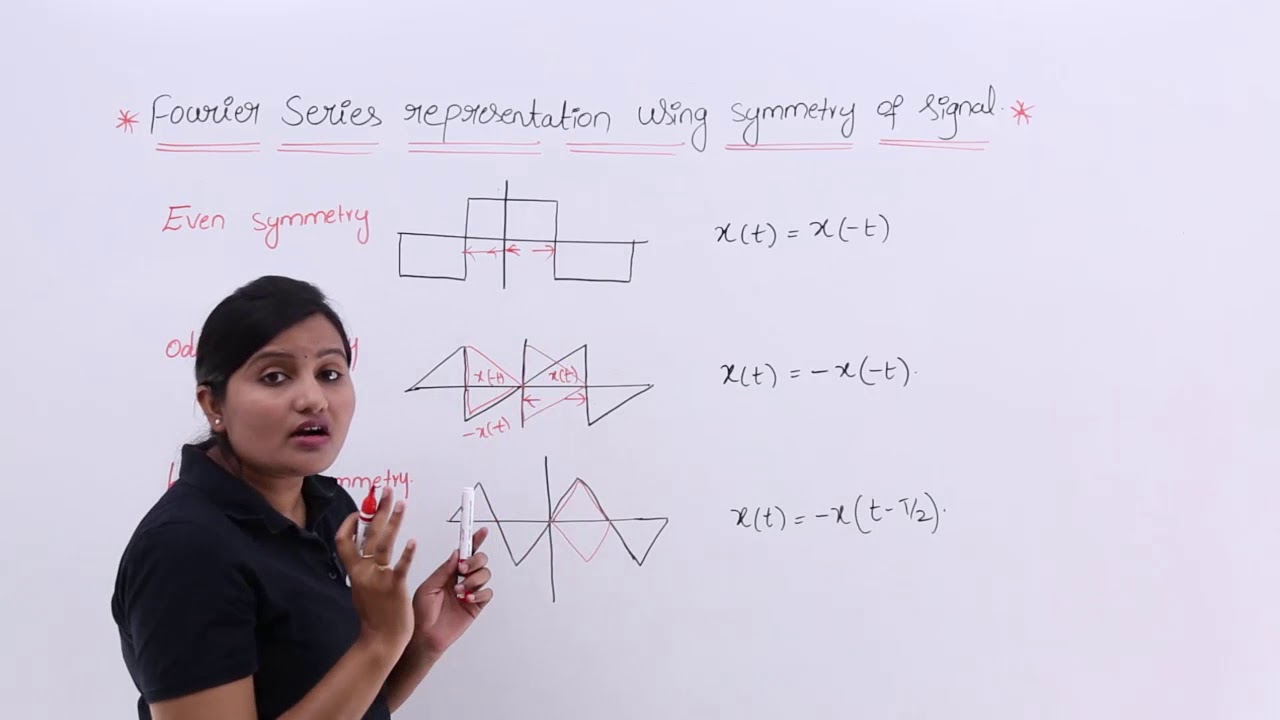 * Fourier Series representation using symmetry of signal. *
Even symmetry
x(t) = x(-t)
x(-t) x(t)
-x(-t)
x(t) = -x(-t).
x(t) = -x(t-T/2).